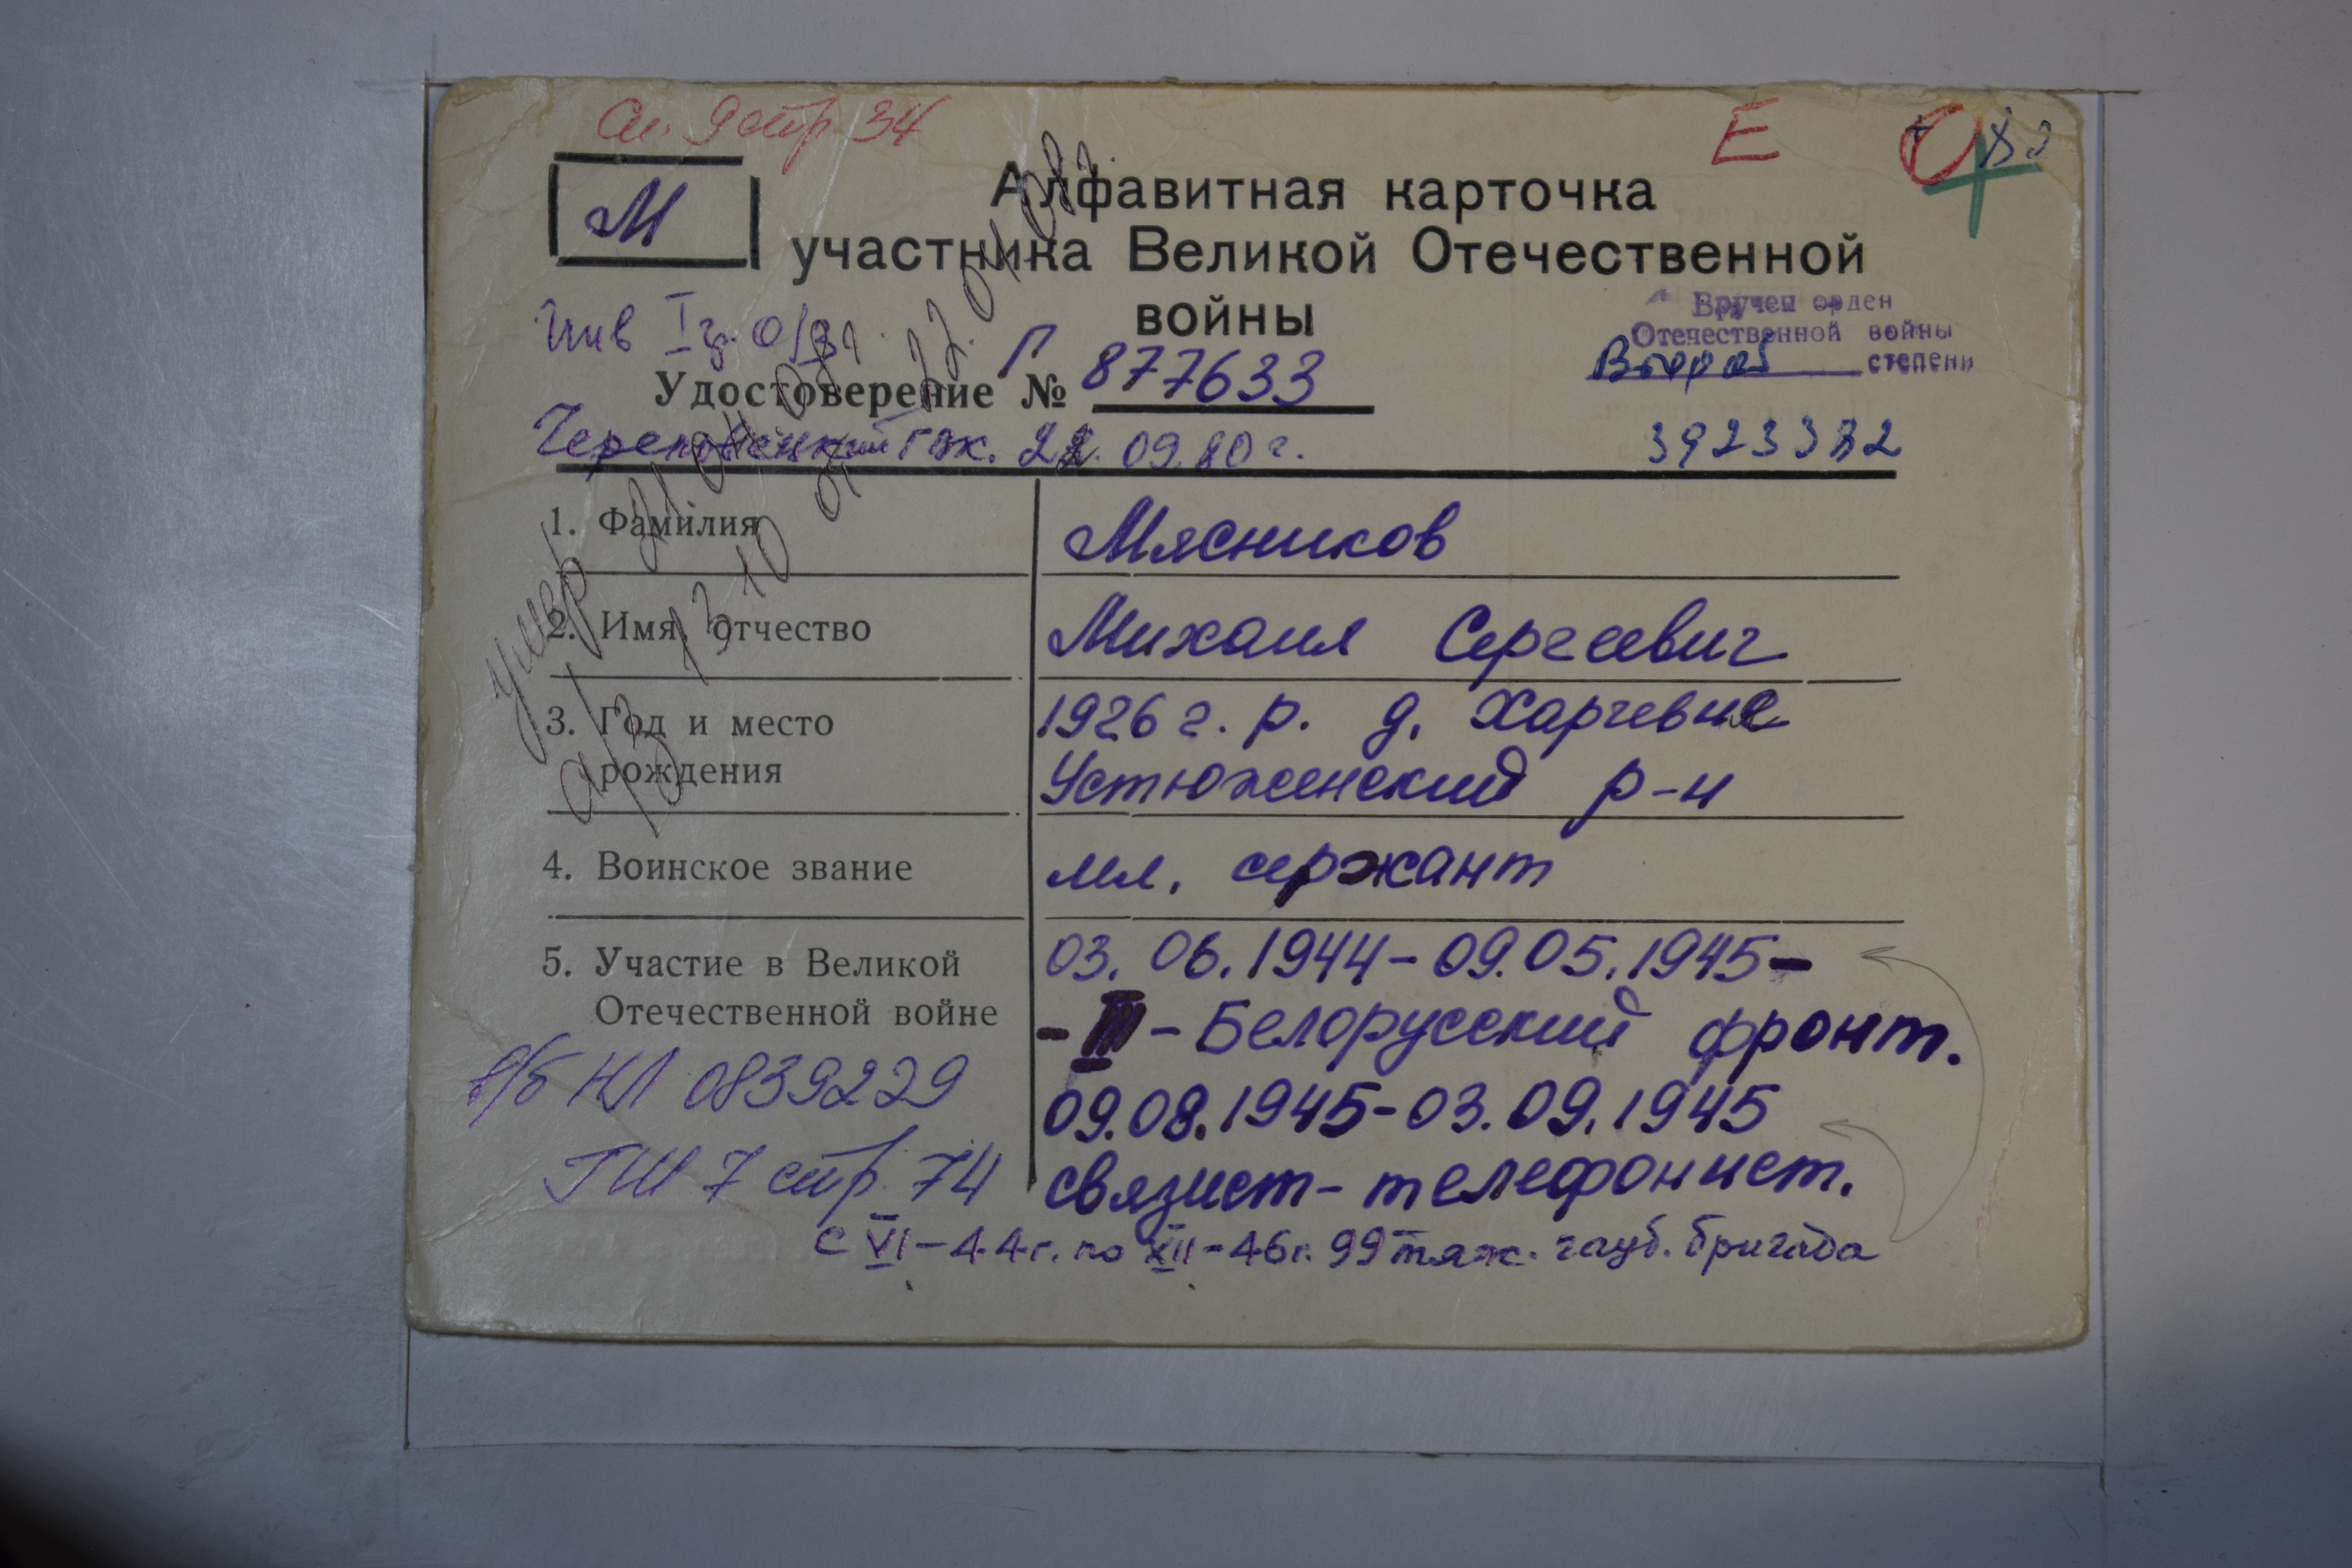 Ал. 9 стр 34
Е
М
Алфавитная карточка
участника Великой Отечественной
войны
Инв I гр.
Вручен орден
Отечественной войны
Второй степени
Удостоверение № Г 877633
Череповецкий ГВК. 22. 09. 80 г.
3923382
умер
а/з 13 10 от
1. Фамилия Мясников
2. Имя, отчество Михаил Сергеевич
3. Год и место 1926 г. р. д. Харчевня
рождения Устюженский р-н
4. Воинское звание мл. сержант
5. Участие в Великой 03. 06. 1944 - 09. 05. 1945 -
Отечественной войне - III - Белорусский фронт.
в/б НЛ 0839229 09. 08. 1945 - 03. 09. 1945
ГШ 7 стр 74 связист - телефонист.
с VI - 44 г. по XII - 46 г. 99 тяж. гауб. бригада